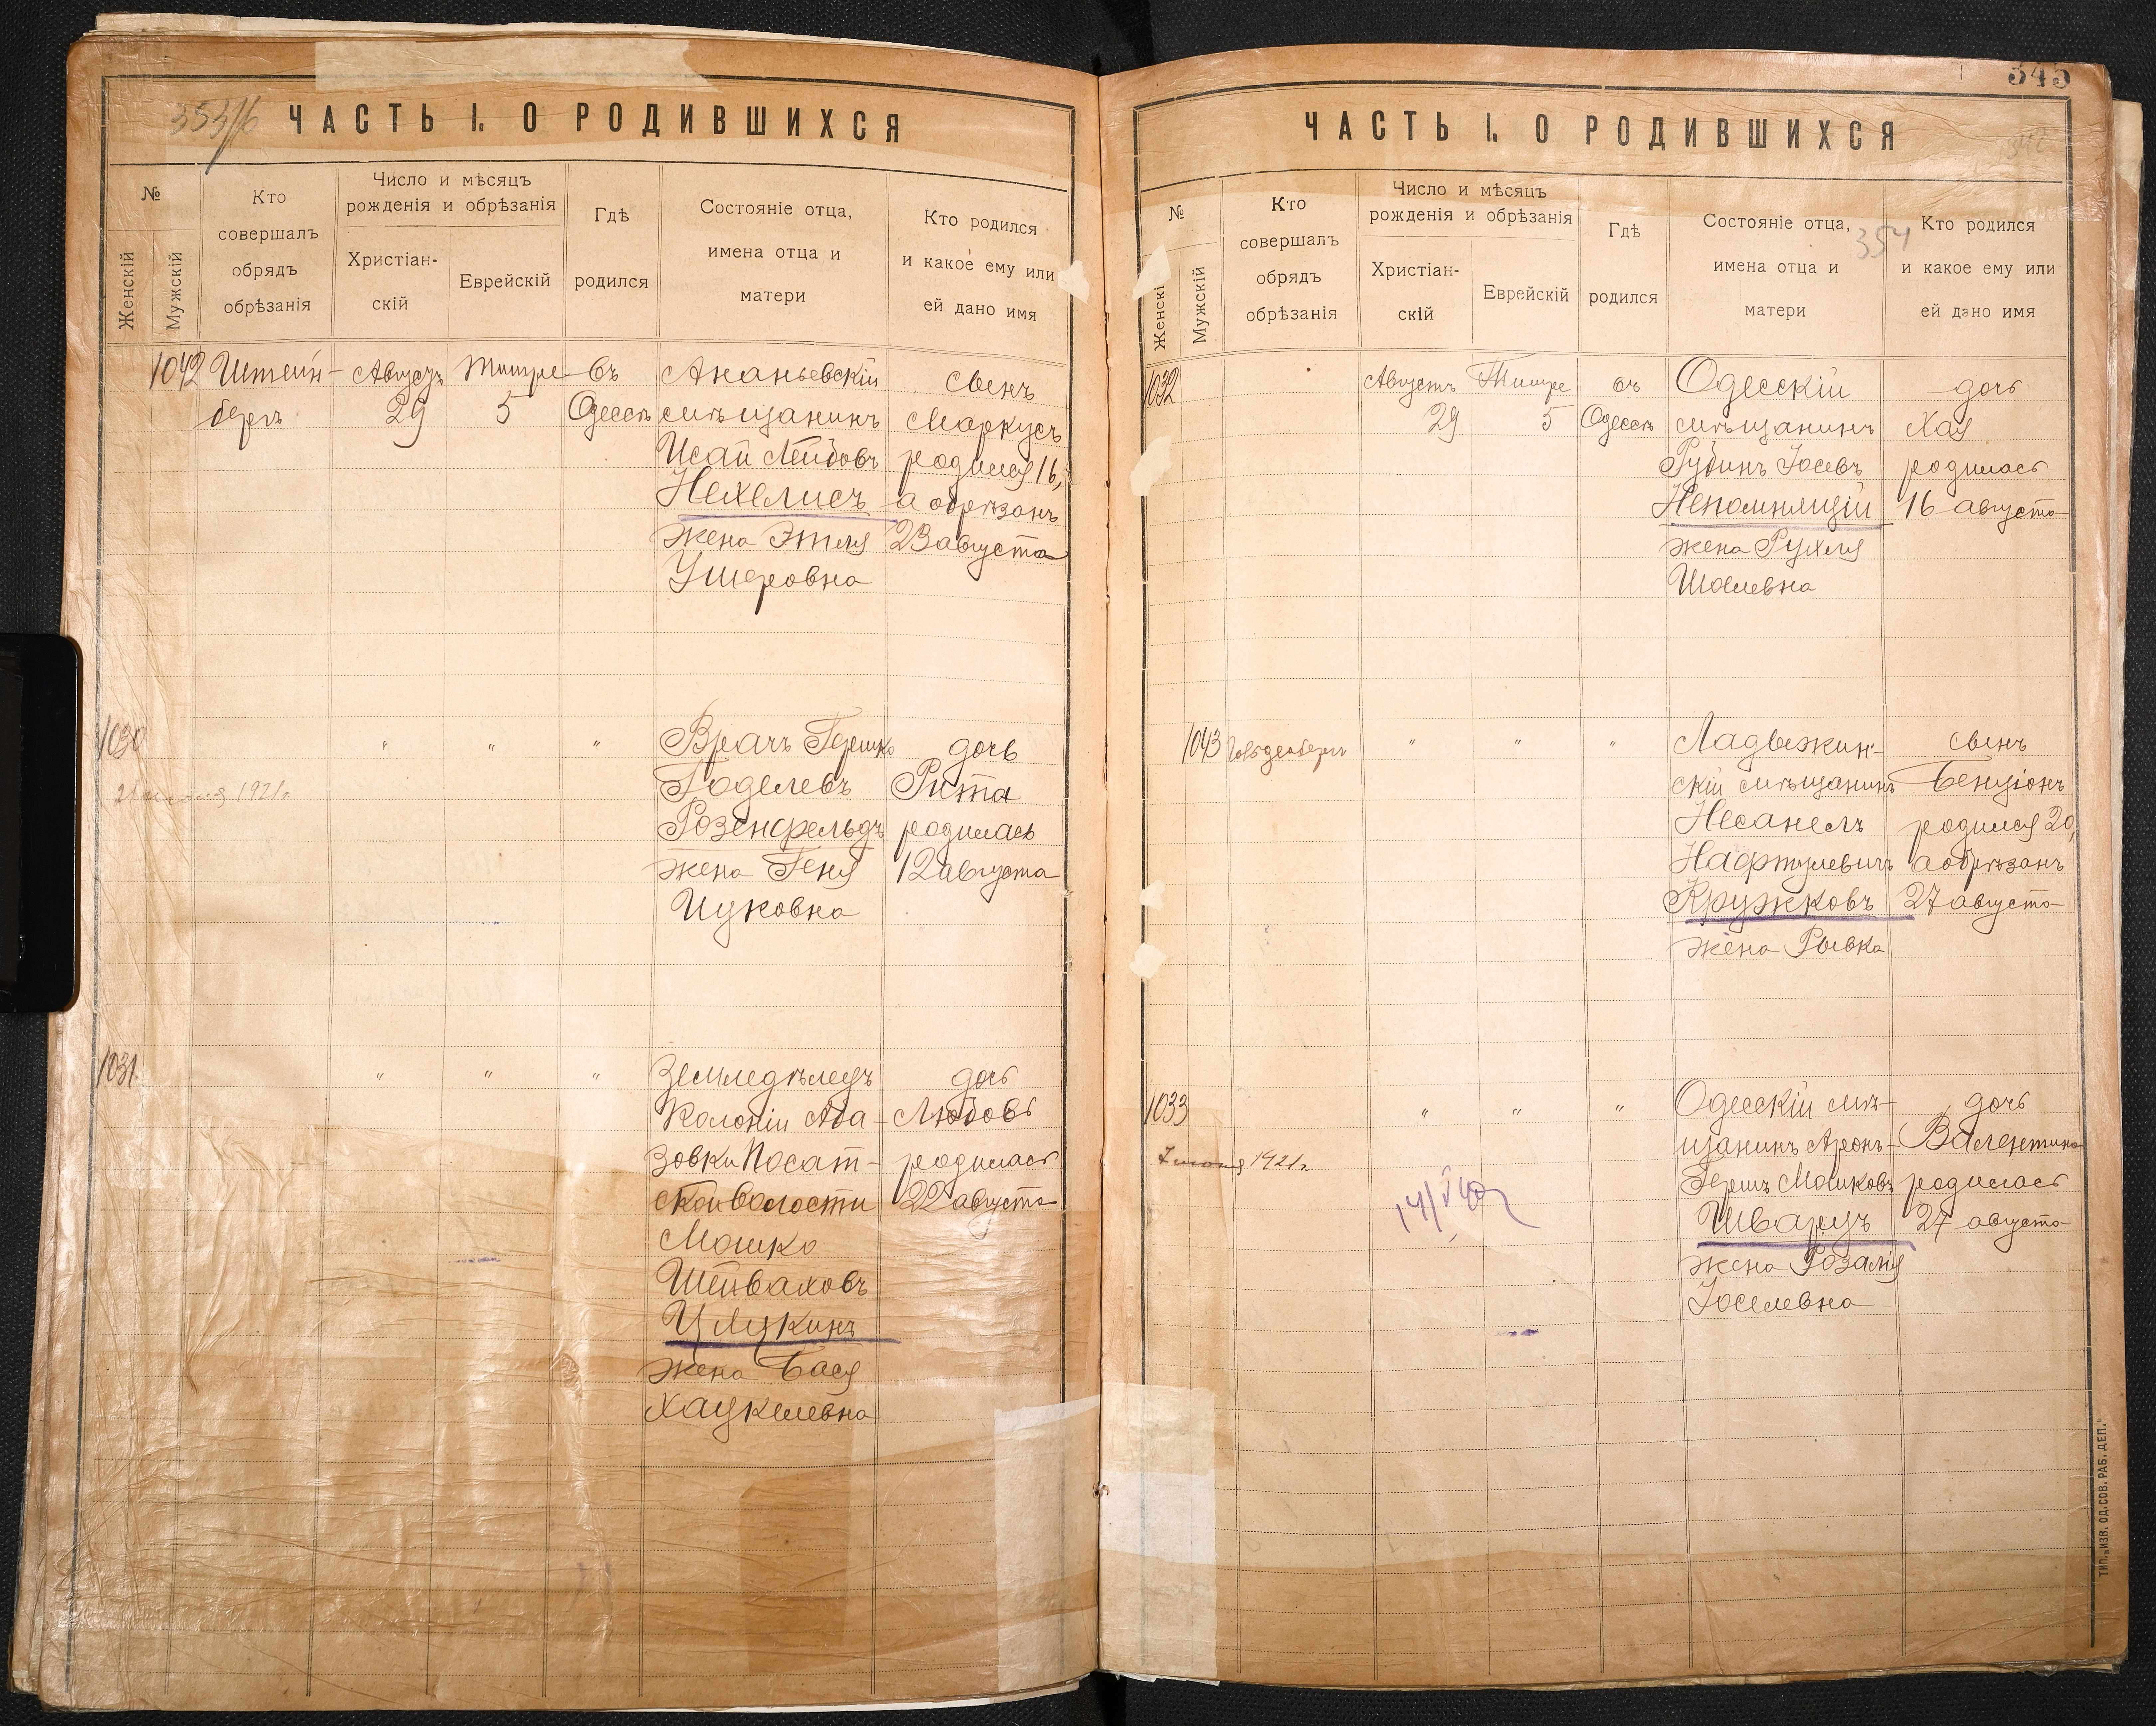 353/б
ЧАСТЬ I. О РОДИВШИХСЯ
№
Женскій
Мужскій
Кто
совершалъ
обрядъ
обрѣзанія
Число и мѣсяцъ
рожденія и обрѣзанія
Христіан-
скій
Еврейскій
Гдѣ
родился
Состояніе отца,
имена отца и
матери
Кто родился
и какое ему или
ей дано имя
1042 Штейн- Августъ Тишре въ Ананьевскій сынъ
бергъ 29 5 Одессѣ мѣщанинъ Маркусъ
Исай Лейбовъ родился 16,
Нехелисъ а обрѣзанъ
жена Этля 23 августа
Ушеровна
1030 " " " Врачъ Гершко дочь
1921 г. Годелевъ Рита
Розенфельдъ родилась
жена Геня 12 августа
Ицковна
1031 " " " Земледѣлецъ дочь
Колоніи Аба- Любовь
зовки Посат- родилась
ской волости 22 августа
Мошко
Шейваховъ
Цлукинъ
жена Бася
Хацкелевна
345
ЧАСТЬ I. О РОДИВШИХСЯ
№
Женскі
Мужскій
Кто
совершалъ
обрядъ
обрѣзанія
Число и мѣсяцъ
рожденія и обрѣзанія
Христіан-
скій
Еврейскій
Гдѣ
родился
Состояніе отца,
имена отца и
матери
354
Кто родился
и какое ему или
ей дано имя
1032 Августъ Тишре въ Одесскій дочь
29 5 Одессѣ мѣщанинъ Хая
Рубинъ Іосевъ родилась
Непомнящій 16 августа
жена Рухля
Шоелевна
1043 Гольденбергъ " " " Ладыжин- сынъ
скій мѣщанинъ Бенціонъ
Несанелъ родился 20,
Нафтулевичъ а обрѣзанъ
Кружковъ 27 августа
жена Рывка
1033 " " " Одесскій мѣ- дочь
щанинъ Аронъ- Валентина
7 июня 1921 г. Гершъ Мошковъ родилась
Шварцъ 27 августа
жена Розалія
Іоселевна
ТИП. „ИЗВ. ОД. СОВ. РАБ. ДЕП."